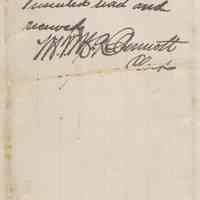 Presented read and
received
W. M. R. Bennett
Clerk